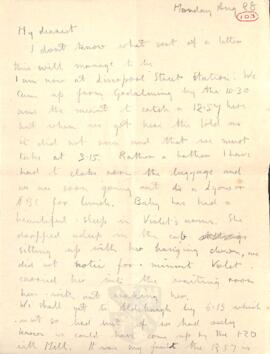 Monday Aug 28
(103)
My dearest
I don't know what sort of a letter
this will manage to be
I am now at Liverpool Street Station. We
came up from Godalming by the 10.30
and the meant to catch a 12.54 here
but when we got here they told me
it did not run and that we must
take a 3.15. Rather a bother I have
had to cloak room the luggage and
we are soon going out to a Lyons or
ABC for lunch. Baby has had a
beautiful sleep in Violet's arms. She
dropped asleep in the cab
sitting up with her hanging down, we
did not notice for a minute Violet
carried her into the waiting room
here without waking her.
We shall get to Aldeburgh by 6.13 which
not so bad but if we had only
known we could have come up by the 1.20
with Mill. It was my fault the 12.54 is